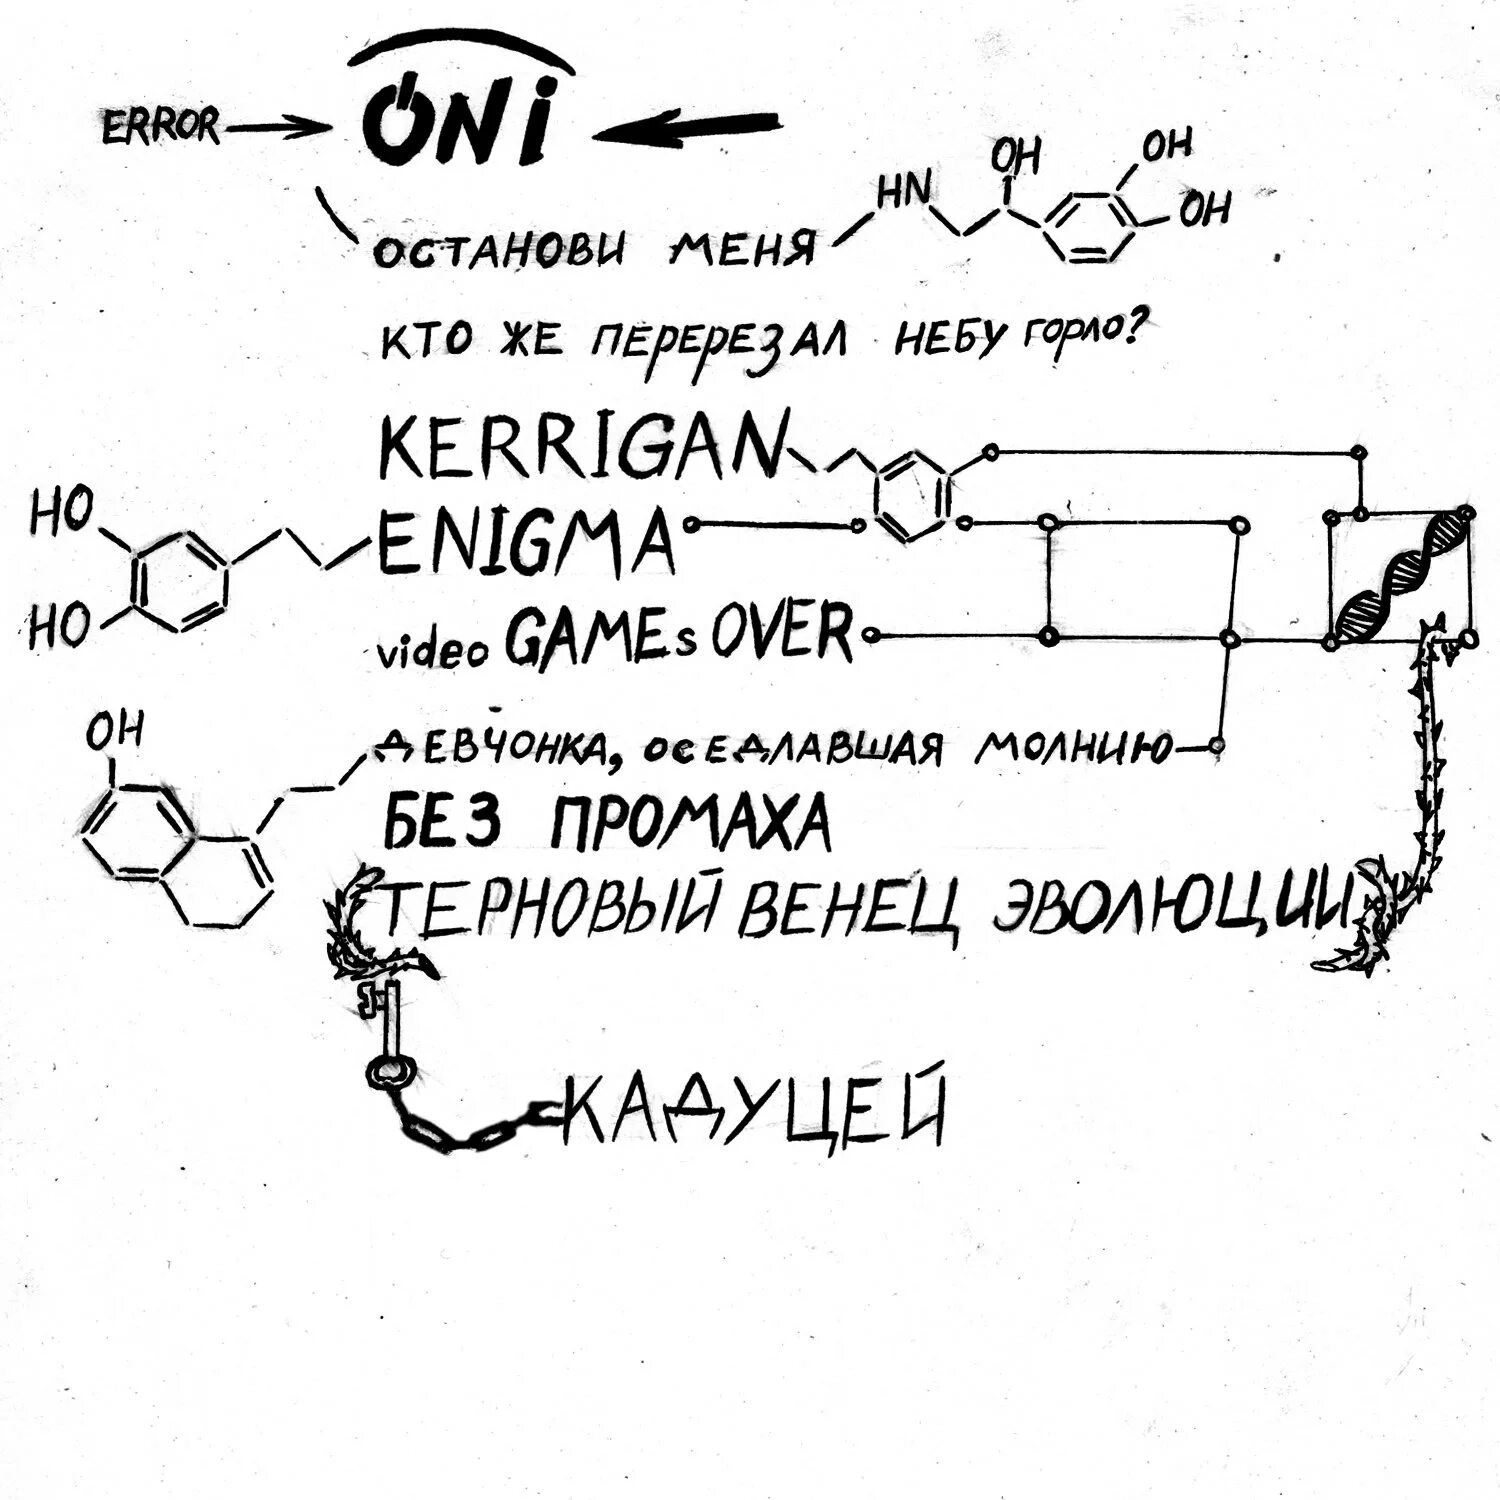 ERROR ONi
OH OH
HN OH
ОСТАНОВИ МЕНЯ
КТО ЖЕ ПЕРЕРЕЗАЛ НЕБУ ГОРЛО?
KERRIGAN
HO
ENIGMA
HO
video GAMEs OVER
OH
ДЕВЧОНКА, ОСЕДЛАВШАЯ МОЛНИЮ
БЕЗ ПРОМАХА
ТЕРНОВЫЙ ВЕНЕЦ ЭВОЛЮЦИИ
КАДУЦЕЙ